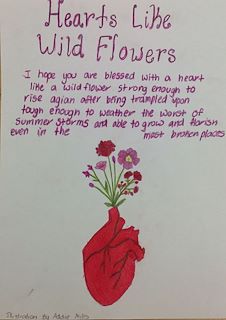 Hearts Like
Wild Flowers
I hope you are blessed with a heart
like a wildflower strong enough to
rise agian after being trampled upon
tough enough to weather the worst of
summer storms and able to grow and florish
even in the most broken places
Illustration by Addie Mills